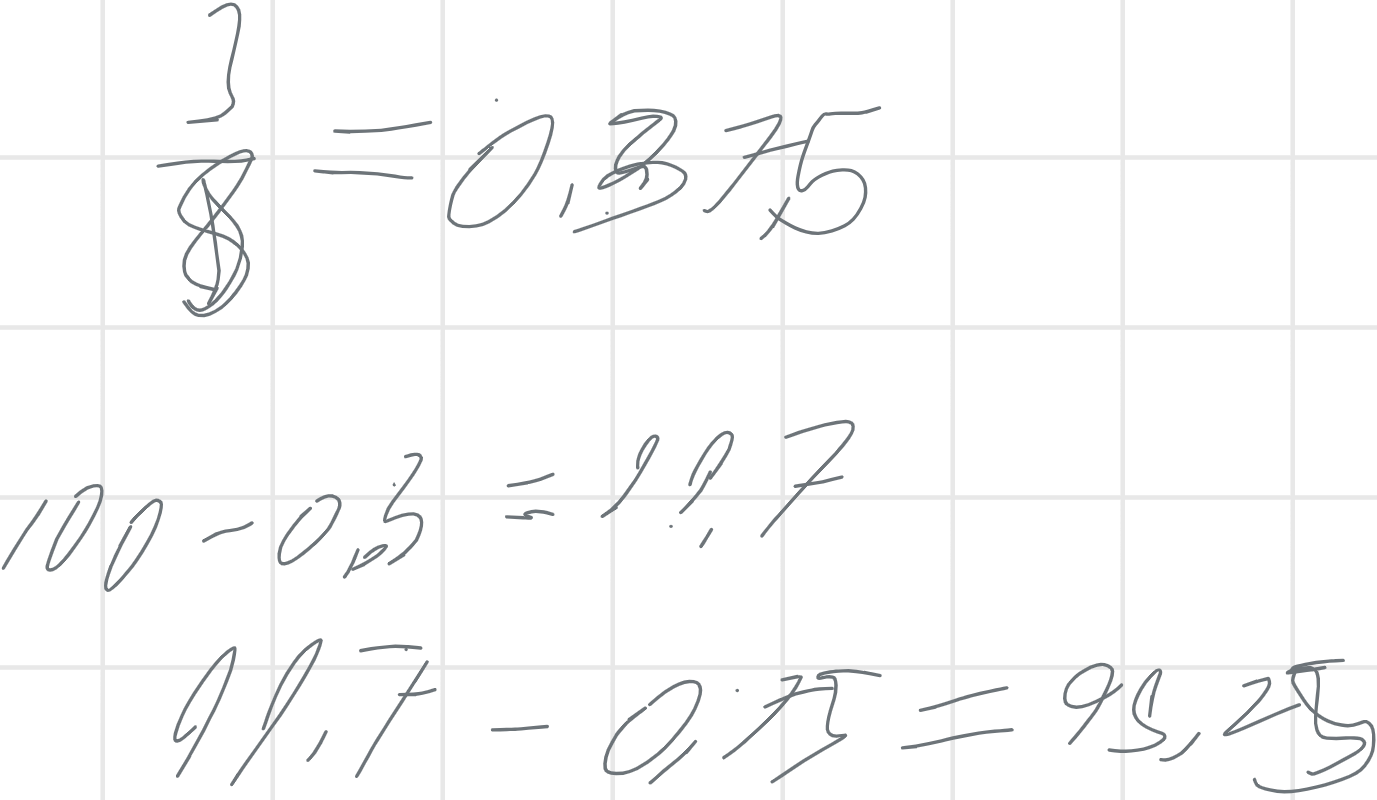 3/8 = 0,375
100 - 0,3 = 99,7
99,7 - 0,75 = 99,25